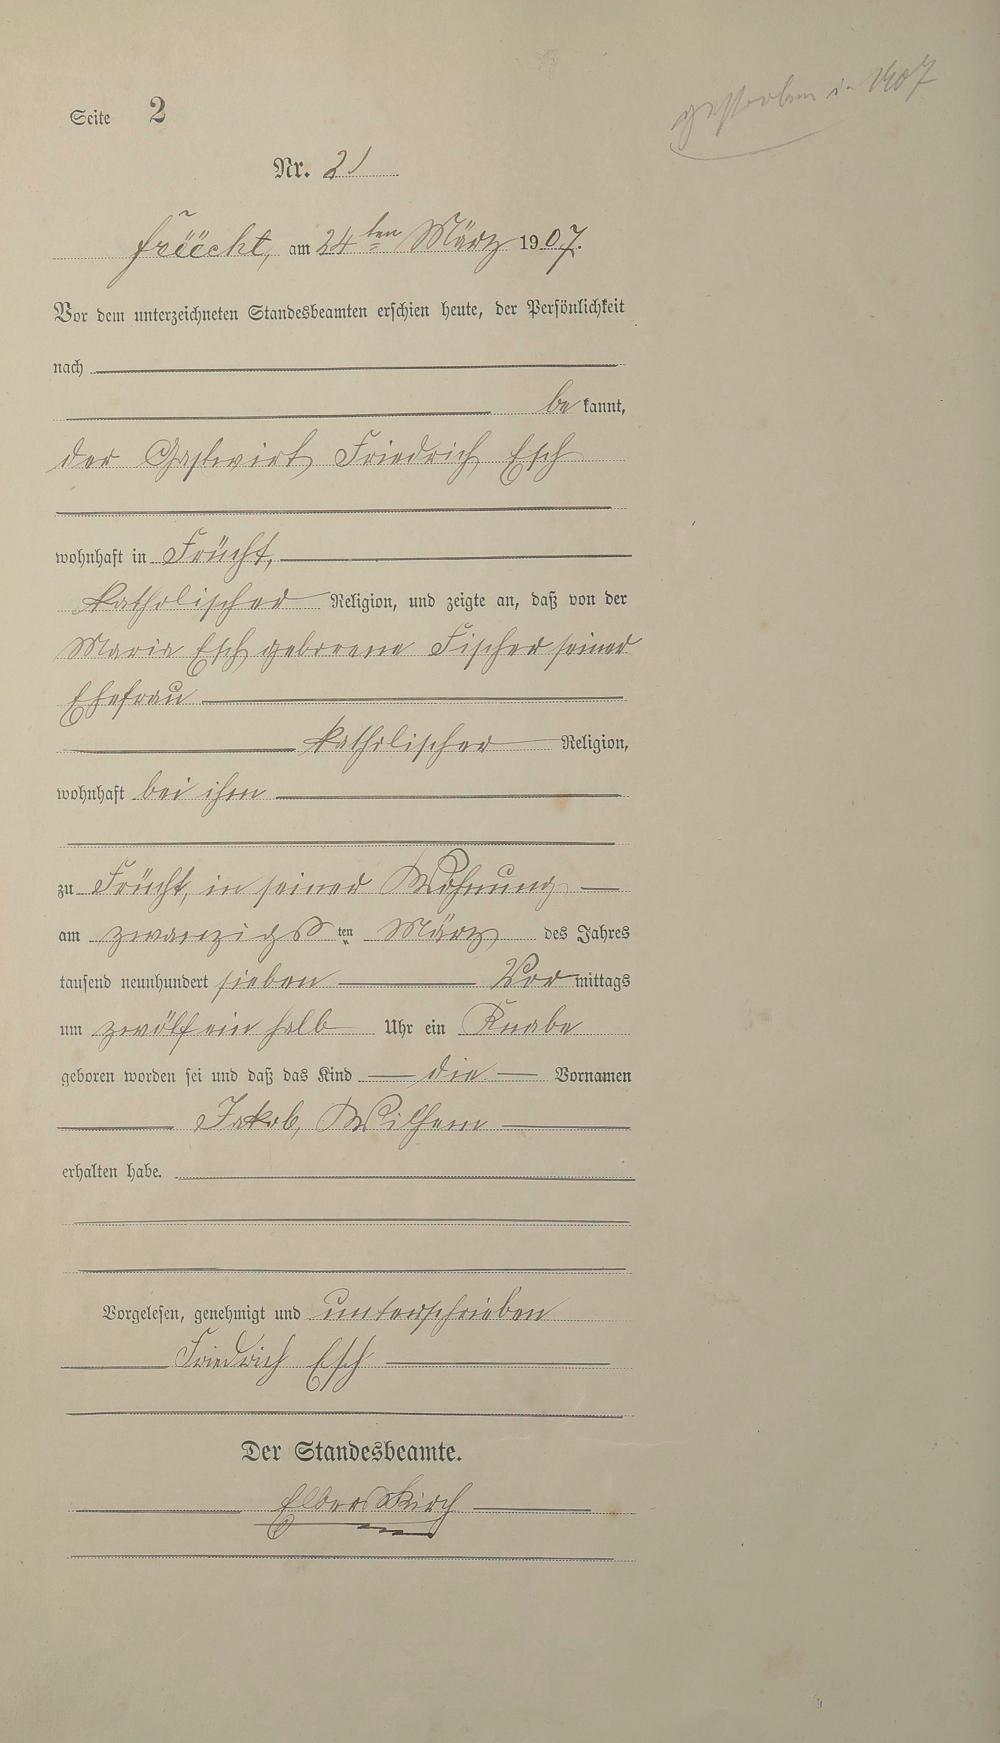 gestorben in 1907
Seite 2
Nr. 21
Früücht, am 24ten März 1907.
Vor dem unterzeichneten Standesbeamten erschien heute, der Persönlichkeit
nach
be kannt,
der Gastwirt Friedrich Esch
wohnhaft in Frücht,
katholischer Religion, und zeigte an, daß von der
Maria Esch geborene Fischer seiner
Ehefrau
katholischer Religion,
wohnhaft bei ihm
zu Frücht, in seiner Wohnung
am zwanzigsten März des Jahres
tausend neunhundert sieben Vor mittags
um zwölf ein halb Uhr ein Knabe
geboren worden sei und daß das Kind die Vornamen
Jakob, Wilhem
erhalten habe.
Vorgelesen, genehmigt und unterschrieben
Friedrich Esch
Der Standesbeamte.
Elberskirch